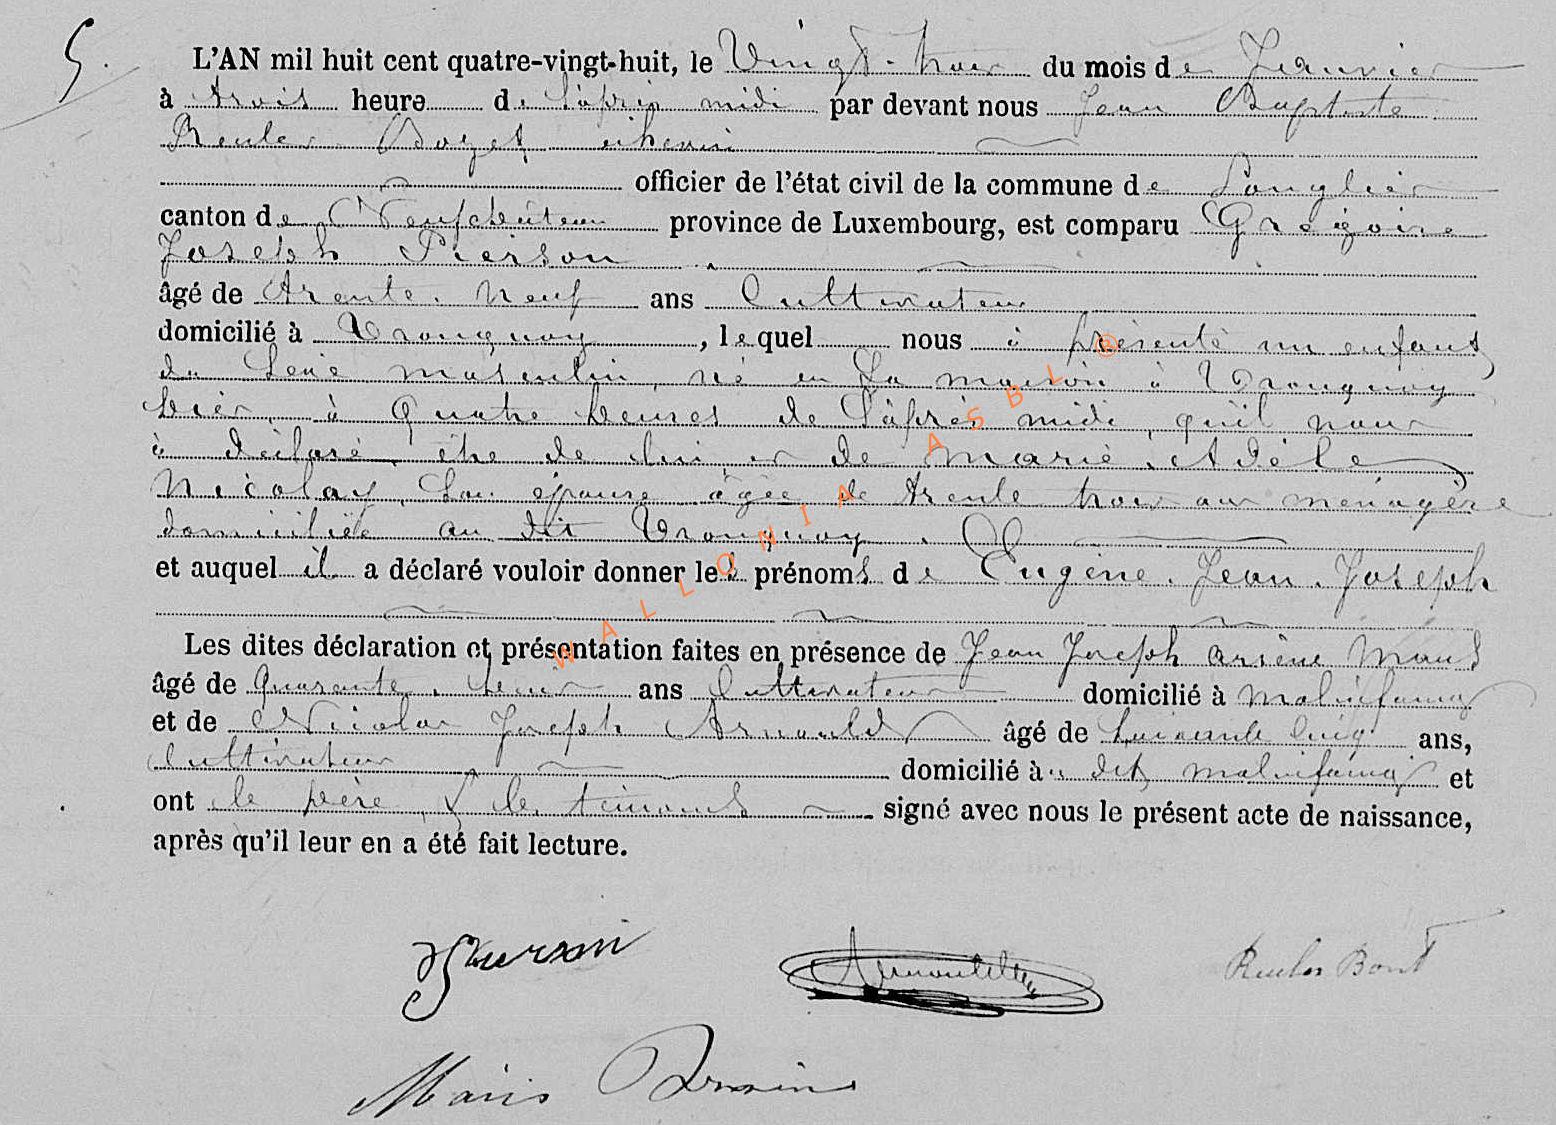 5.
L'AN mil huit cent quatre-vingt-huit, le Vingt-trois du mois de Janvier
à trois heure de l'après midi par devant nous Jean Baptiste
Reuler échevin
officier de l'état civil de la commune de Longlier
canton de Neufchâteau province de Luxembourg, est comparu Grégoire
Joseph Pierson
âgé de trente-neuf ans Cultivateur
domicilié à Tronquoy, lequel nous à présenté un enfant
du sexe masculin, né en sa maison à Tronquoy
hier à quatre heures de l'après midi, qu'il nous
à déclaré être de lui et de Marie Adèle
Nicolay, son épouse âgée de trente trois ans ménagère
domiciliée au dit Tronquoy.
et auquel il a déclaré vouloir donner les prénoms de Eugène. Jean. Joseph
Les dites déclaration et présentation faites en présence de Jean Joseph arsène
âgé de quarante ans Cultivateur domicilié à Molinfaing
et de Nicolas Joseph Arnould âgé de soixante cinq ans,
Cultivateur domicilié à dit Molinfaing et
ont le père & les témoins signé avec nous le présent acte de naissance,
après qu'il leur en a été fait lecture.
WALLONIA ASBL ©
JPierson Arnould Reuler
Arsène